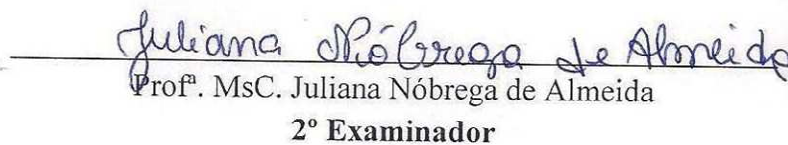 Juliana Nóbrega de Almeida
Profª. MsC. Juliana Nóbrega de Almeida
2º Examinador